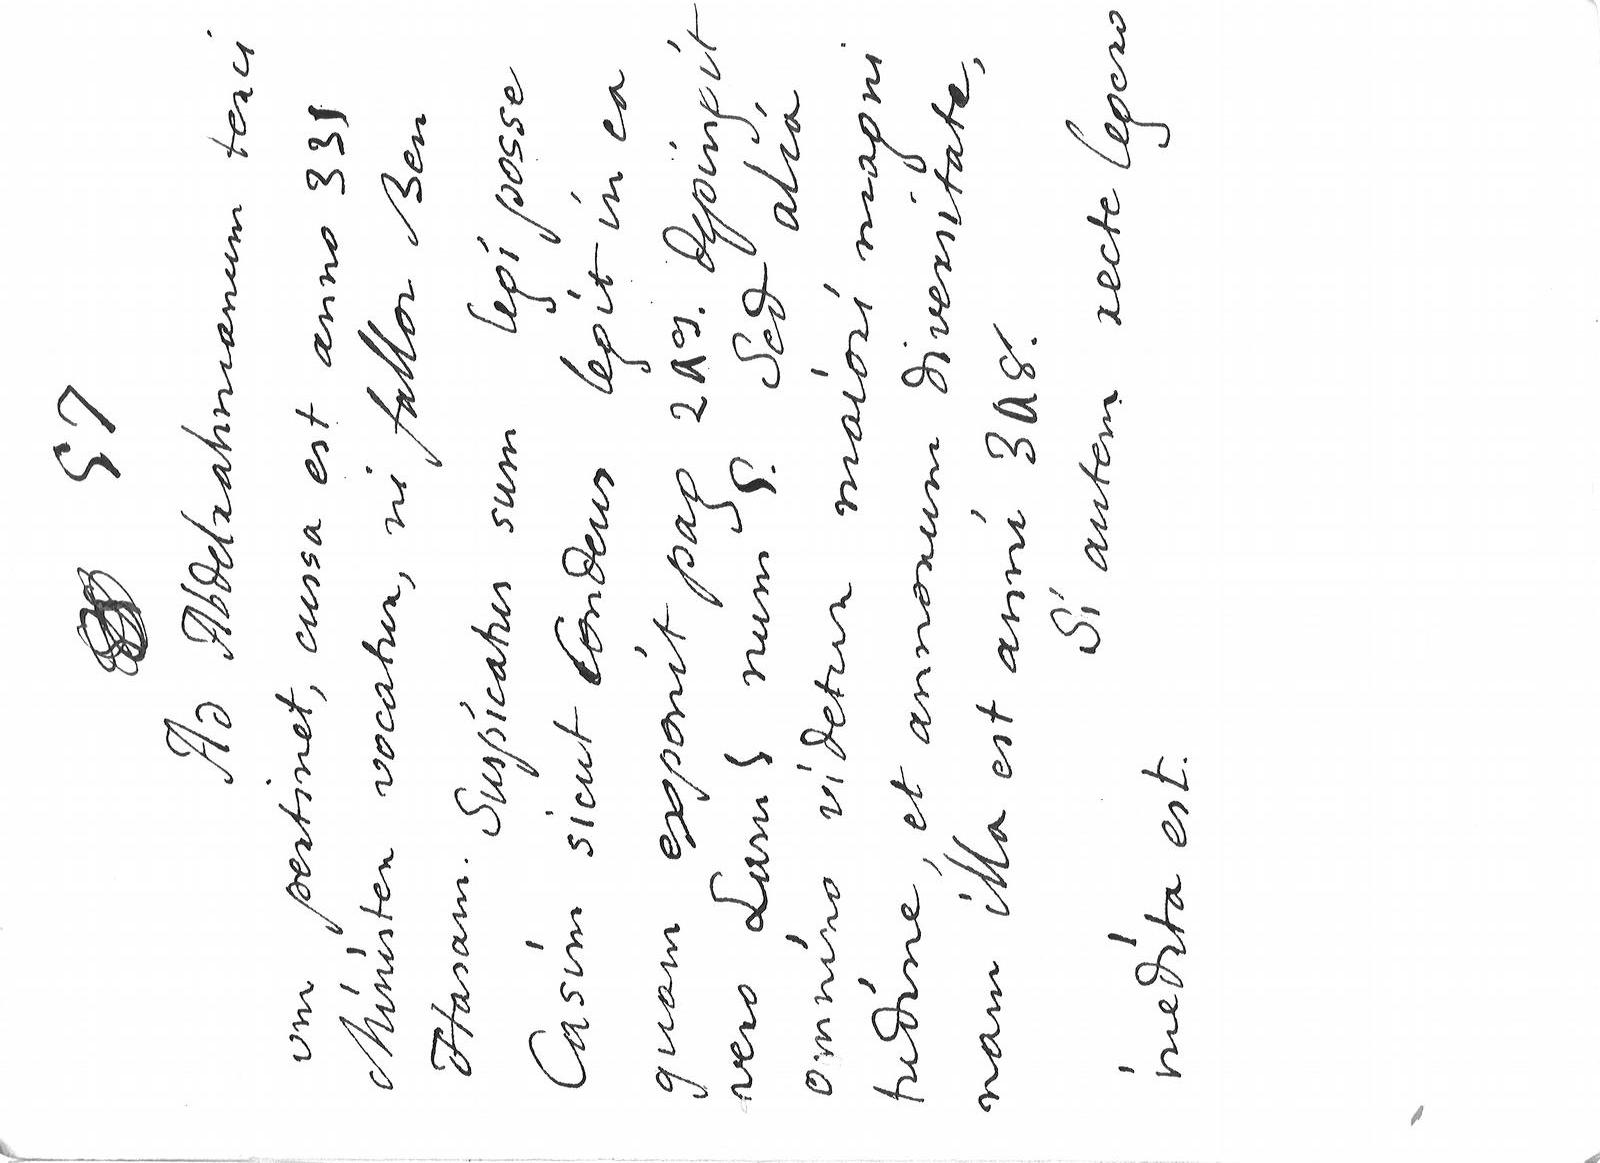 57
Ad Abdelrahmanum terci
um pertinet, cussa est anno 331
Minister vocatur, ni fallor Ben
Hasam. Suspicatus sum legi posse
Casim sicut Condeus legit in ea
quam exponit pag 249. Depingit
vero Lam § num 5. Sed alia
omnino videtur maiori magni
tudine, et annorum diversitate,
nam illa est anni 348.
Si autem recte legero
inedita est.